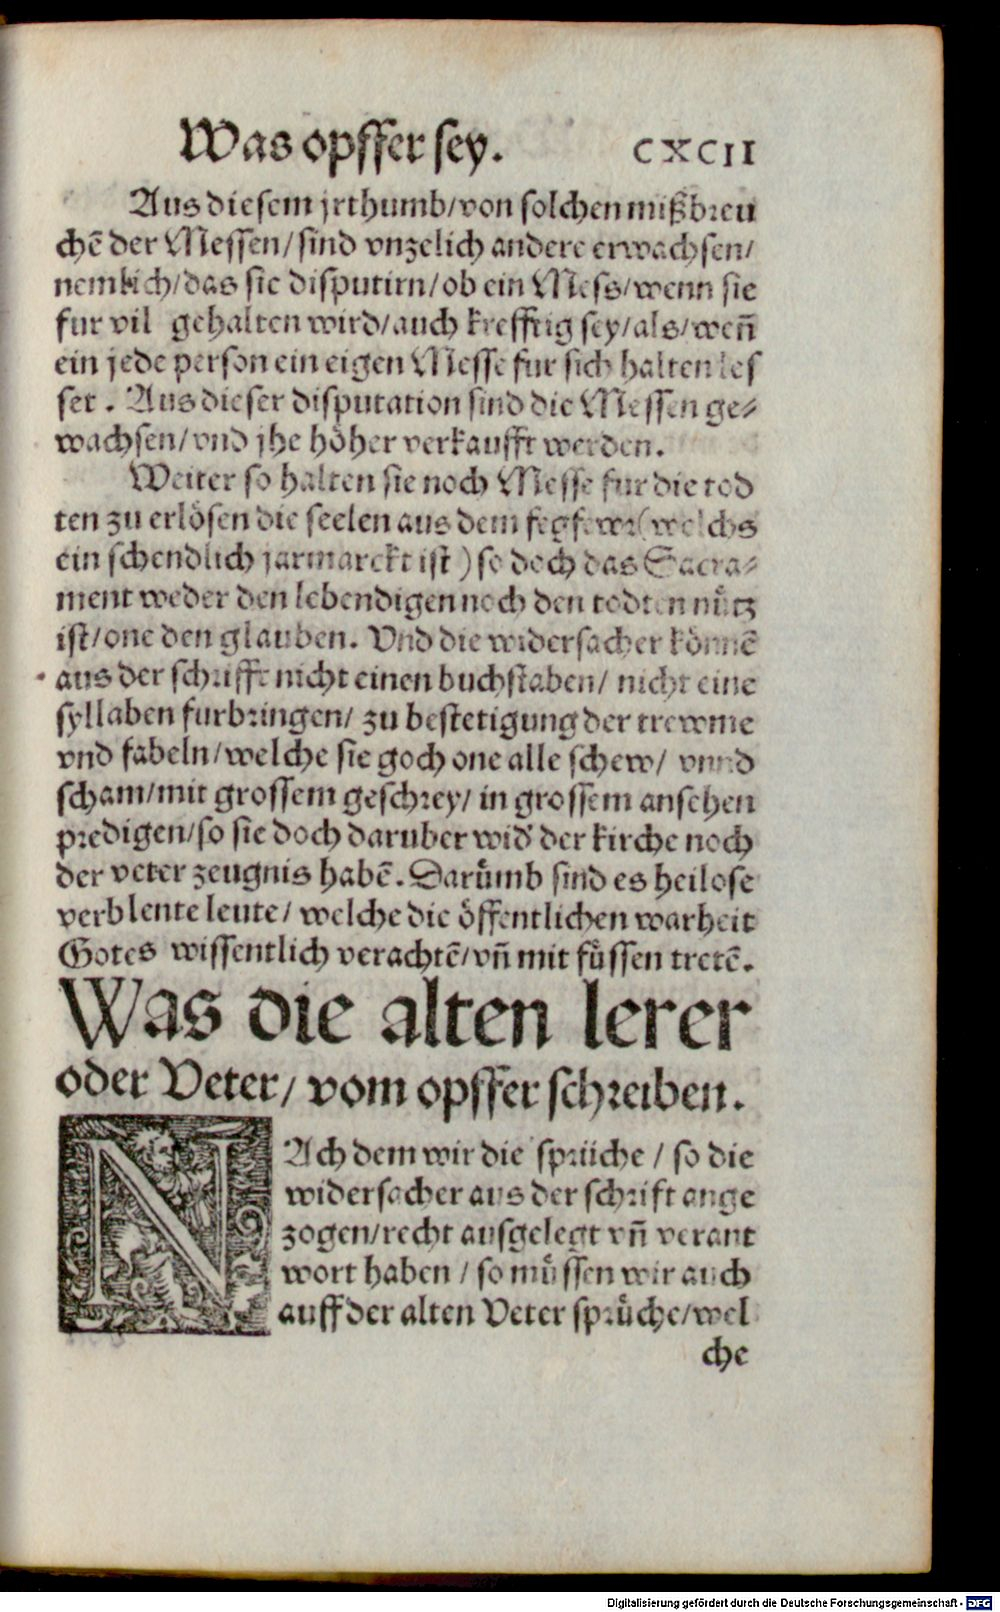 Was opffer sey. CXCII
Aus diesem jrthumb/von solchen mißbreu
chẽ der Messen/sind vnzelich andere erwachsen/
nemlich/das sie disputirn/ob ein Mess/wenn sie
fur vil gehalten wird/auch krefftig sey/als/weñ
ein jede person ein eigen Messe fur sich halten les
set. Aus dieser disputation sind die Messen ge⸗
wachsen/vnd jhe höher verkaufft werden.
Weiter so halten sie noch Messe fur die tod
ten zu erlösen die seelen aus dem fegfewr(welchs
ein schendlich jarmarckt ist) so doch das Sacra⸗
ment weder den lebendigen noch den todten nütz
ist/one den glauben. Vnd die widersacher könnẽ
aus der schrifft nicht einen buchstaben/ nicht eine
syllaben furbringen/ zu bestetigung der trewme
vnd fabeln/welche sie goch one alle schew/ vnnd
scham/mit grossem geschrey/ in grossem ansehen
predigen/so sie doch daruber wid' der kirche noch
der veter zeugnis habẽ. Darümb sind es heilose
verblente leute/ welche die öffentlichen warheit
Gotes wissentlich verachtẽ/vñ mit füssen tretẽ.
Was die alten lerer
oder Veter/ vom opffer schreiben.
NAch dem wir die sprüche / so die
widersacher aus der schrift ange
zogen/recht ausgelegt vñ verant
wort haben / so müssen wir auch
auff der alten Veter sprüche/wel
che
Digitalisierung gefördert durch die Deutsche Forschungsgemeinschaft - DFG